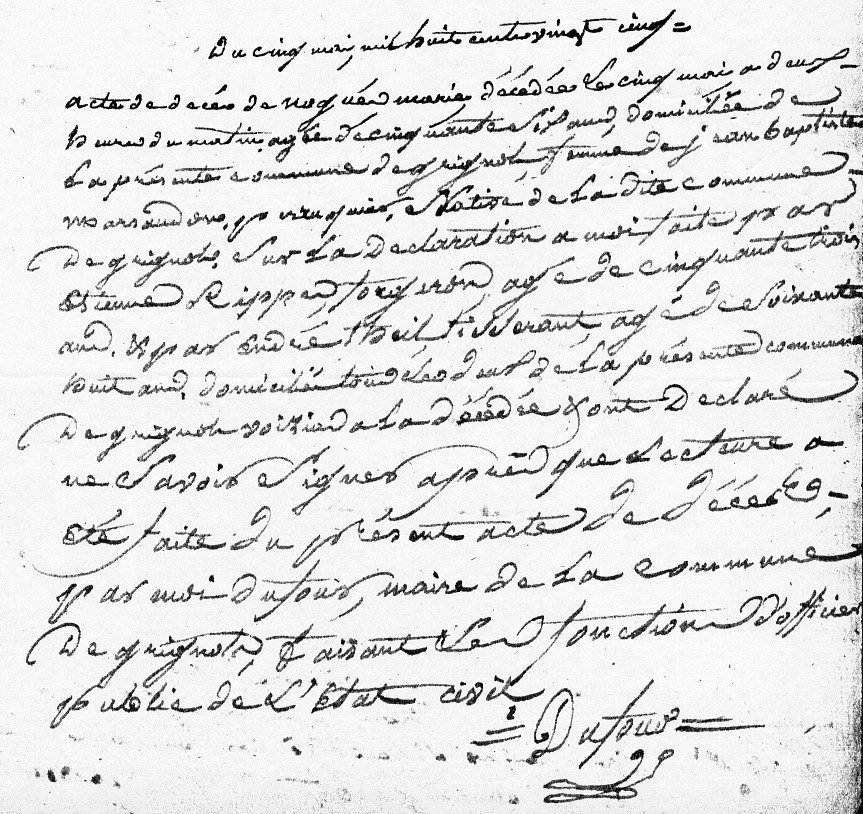 Du cinq mai, mil huit cent vingt cinq =
acte de decés de noguér marie, décédée le cinq mai a deux
heures du matin, agée de cinquante six ans, domiciliée de
la présente commune de grignols femme de jean baptiste
marsaudon, perruquier, Native de la dite commune
De grignols, sur la Declaration a moi faite par
etienne Ripper, forgeron, agé de cinquante trois
ans, & par André theil tisserant, agé de soixante
huit ans, domiciliés tous les deux de la présente commune
De grignols voisins a la décédée & ont Declaré
ne savoir signer après que lecture a
été faite du présent acte de décès
par moi dufour, maire de la commune
De grignols, faisant les fonction d'officier
public de L'Etat civil
Dufour